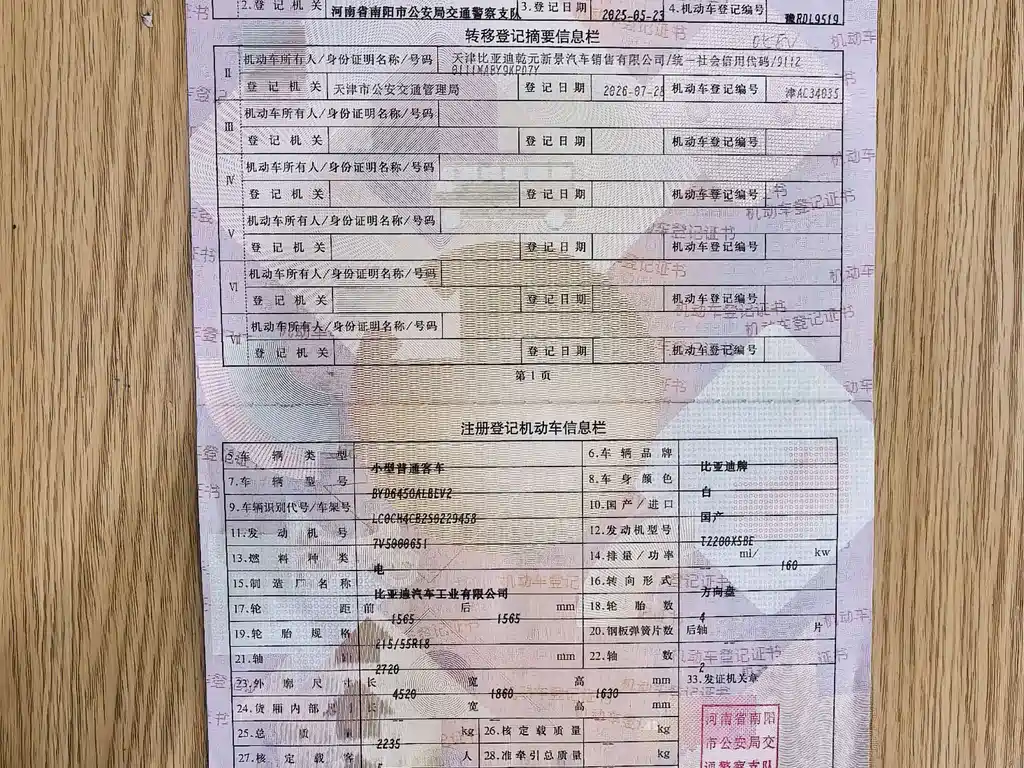 2.登记机关 河南省南阳市公安局交通警察支队 3.登记日期 2025-05-23 4.机动车登记编号 豫RDL9519
转移登记摘要信息栏
II 机动车所有人/身份证明名称/号码 天津比亚迪乾元新景汽车销售有限公司/统一社会信用代码/9112
0111MABY9KP07Y
登记机关 天津市公安交通管理局 登记日期 2026-07-28 机动车登记编号 津AC34035
III 机动车所有人/身份证明名称/号码
登记机关 登记日期 机动车登记编号
IV 机动车所有人/身份证明名称/号码
登记机关 登记日期 机动车登记编号
V 机动车所有人/身份证明名称/号码
登记机关 登记日期 机动车登记编号
VI 机动车所有人/身份证明名称/号码
登记机关 登记日期 机动车登记编号
VII 机动车所有人/身份证明名称/号码
登记机关 登记日期 机动车登记编号
第1页
注册登记机动车信息栏
5.车辆类型 小型普通客车 6.车辆品牌 比亚迪牌
7.车辆型号 BYD6450ALBEV2 8.车身颜色 白
9.车辆识别代号/车架号 LC0CH4CB2S0229458 10.国产/进口 国产
11.发动机号 7V5000651 12.发动机型号 TZ200XSBE
13.燃料种类 电 14.排量/功率 ml/ 160 kw
15.制造厂名称 比亚迪汽车工业有限公司 16.转向形式 方向盘
17.轮距 前 1565 后 1565 mm 18.轮胎数 4
19.轮胎规格 215/55R18 20.钢板弹簧片数 后轴 片
21.轴距 2720 mm 22.轴数 2
23.外廓尺寸 长 4520 宽 1860 高 1630 mm 33.发证机关章
24.货厢内部尺寸 长 宽 高 mm
25.总质量 2235 kg 26.核定载质量 kg
27.核定载客 5 人 28.准牵引总质量 kg
河南省南阳
市公安局交
通警察支队